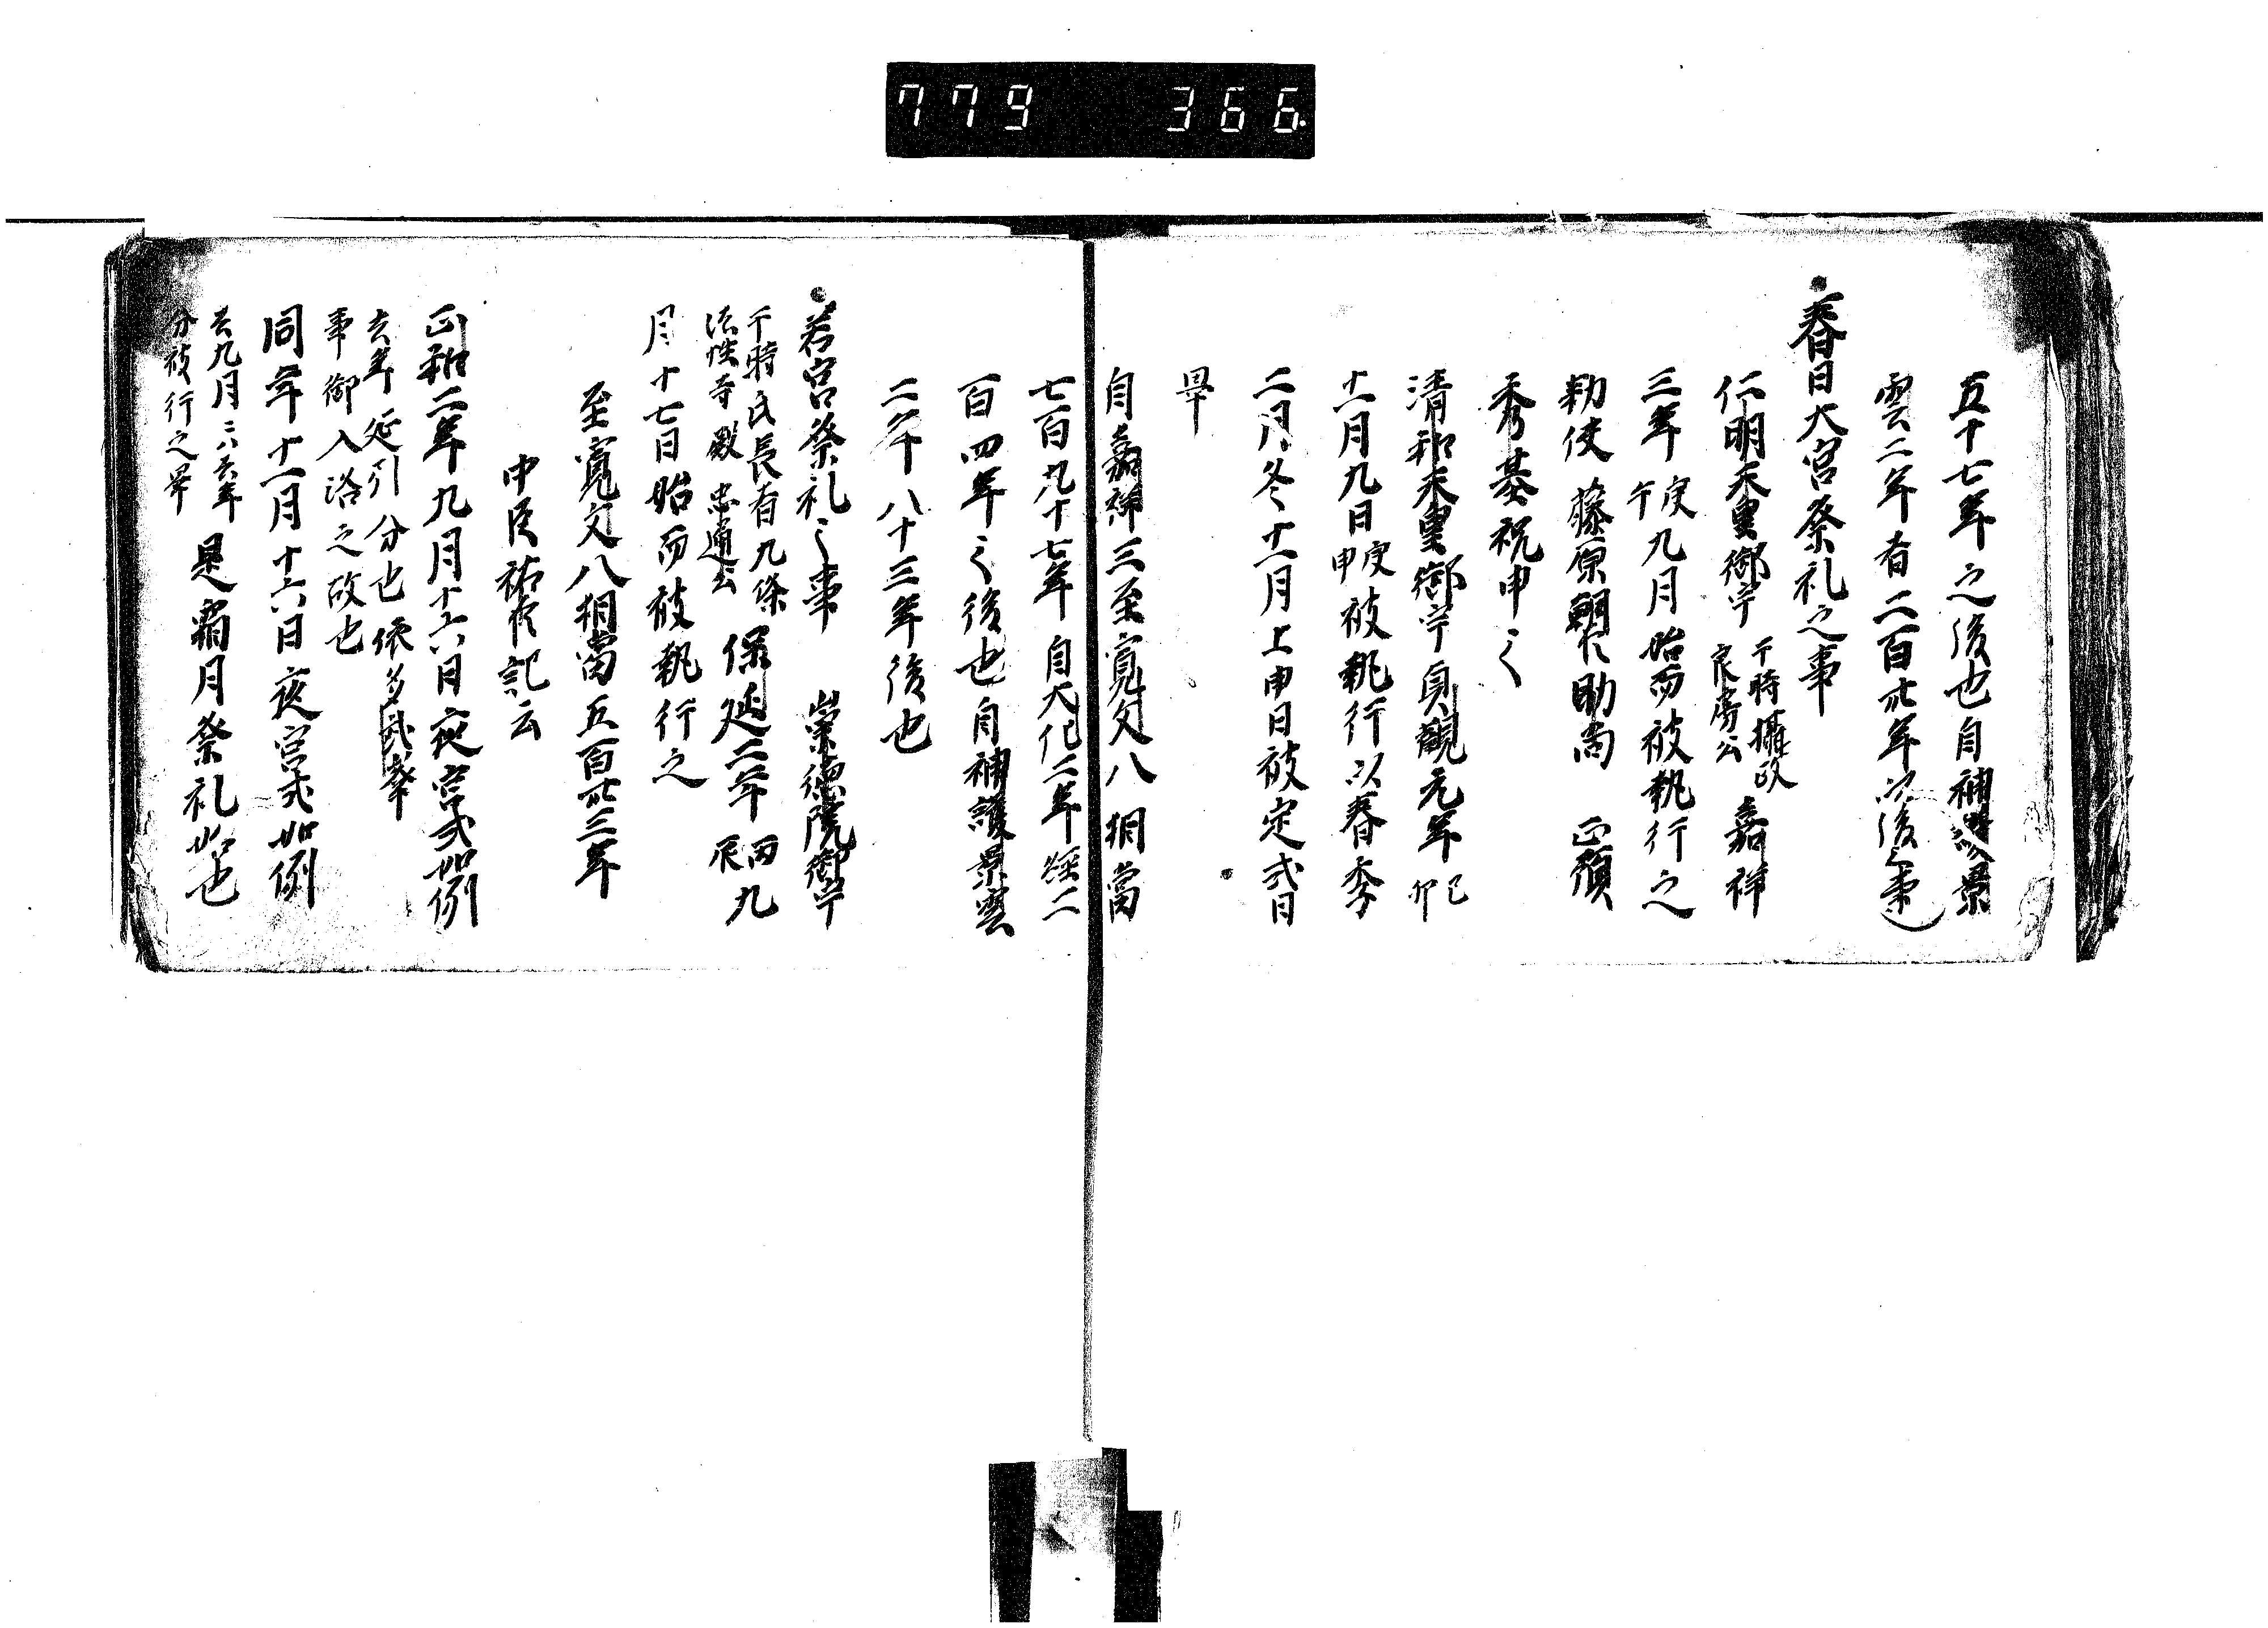 779 366
五十七年之後也自神護景
雲二年者二百卅年以後之事
春日大宮祭礼之事
仁明天皇御宇 于時攝政
良房公 嘉祥
三年 庚午 九月始而被執行之
勅使 藤原朝臣助尚 正預
秀基祝申之
清和天皇御宇貞観元年 己卯
十一月九日 庚申 被執行以春季
二月冬十一月上申日被定式日
畢
自嘉祥三至寛文八相當
七百九十七年自大化二年経二
百四年之後也自神護景雲
二年八十三年後也
若宮祭礼之事 崇徳院御宇
于時氏長者九條
法性寺殿忠通公 保延二年 丙辰 九
月十七日始而被執行之
至寛文八相當五百卅三年
中臣祐 記云
正和二年九月十六日夜宮式如例
去年延引分也依多武峯
事御入洛之故也
同年十一月十六日夜宮式如例
去九月二八去年
分被行之畢 是霜月祭礼始也